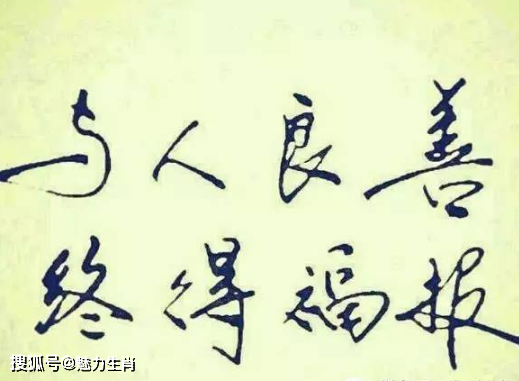 与人良善
终得福报
搜狐号@魅力生肖